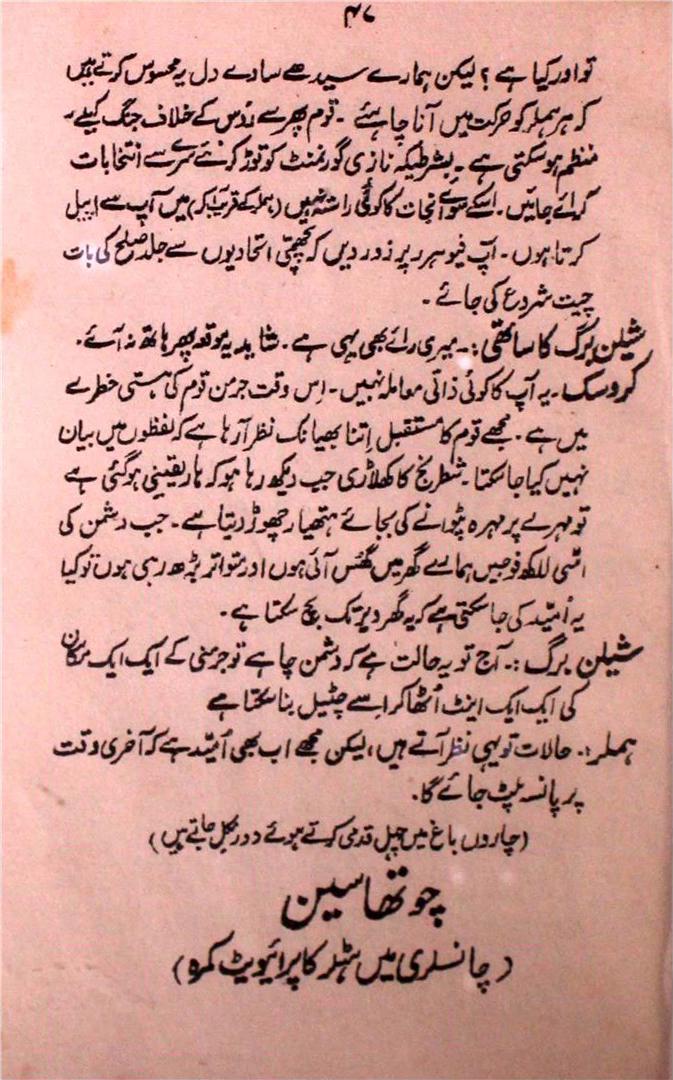 ۴۷
تو اور کیا ہے ؟ لیکن ہمارے سیدھے سادے دل یہ محسوس کرتے ہیں
کہ ہر ہملر کو حرکت میں آنا چاہئے ۔ قوم پھر سے رُوس کے خلاف جنگ کیلئے
منظم ہوسکتی ہے ۔ بشرطیکہ نازی گورنمنٹ کو توڑ کر نئے سرے سے انتخابات
کرائے جائیں ۔ اسکے سوائے نجات کا کوئی راستہ نہیں (ہملر کے قریب آکر) میں آپ سے اپیل
کرتا ہوں ۔ آپ فیوہرر پر زور دیں کہ پچھمی اتحادیوں سے جلد صلح کی بات
چیت شروع کی جائے ۔
شیلن برگ کا ساتھی :۔ میری رائے بھی یہی ہے ۔ شاید یہ موقعہ پھر ہاتھ نہ آئے ۔
کروسک ۔ یہ آپ کا کوئی ذاتی معاملہ نہیں ۔ اِس وقت جرمن قوم کی ہستی خطرے
میں ہے ۔ مجھے قوم کا مستقبل اِتنا بھیانک نظر آرہا ہے کہ لفظوں میں بیان
نہیں کیا جاسکتا ۔ شطرنج کا کھلاڑی جب دیکھ رہا ہو کہ ہار یقینی ہوگئی ہے
تو مہرے پر مہرہ پٹوانے کی بجائے ہتھیار چھوڑ دیتا ہے ۔ جب دشمن کی
اسّی لاکھ فوجیں ہمارے گھر میں گھُس آئی ہوں اور متواتر بڑھ رہی ہوں تو کیا
یہ اُمیّد کی جاسکتی ہے کہ یہ گھر دیر تک بچ سکتا ہے ۔
شیلن برگ :۔ آج تو یہ حالت ہے کہ دشمن چاہے تو جرمنی کے ایک ایک مکان
کی ایک ایک اینٹ اُٹھا کر اِسے چٹیل بنا سکتا ہے
ہملر :۔ حالات تو یہی نظر آتے ہیں ، لیکن مجھے اب بھی اُمیّد ہے کہ آخری وقت
پر پانسہ پلٹ جائے گا ۔
(چاروں باغ میں چہل قدمی کرتے ہوئے دور نکل جاتے ہیں)
چوتھا سین
(چانسلری میں ہٹلر کا پرائیویٹ کمرہ)